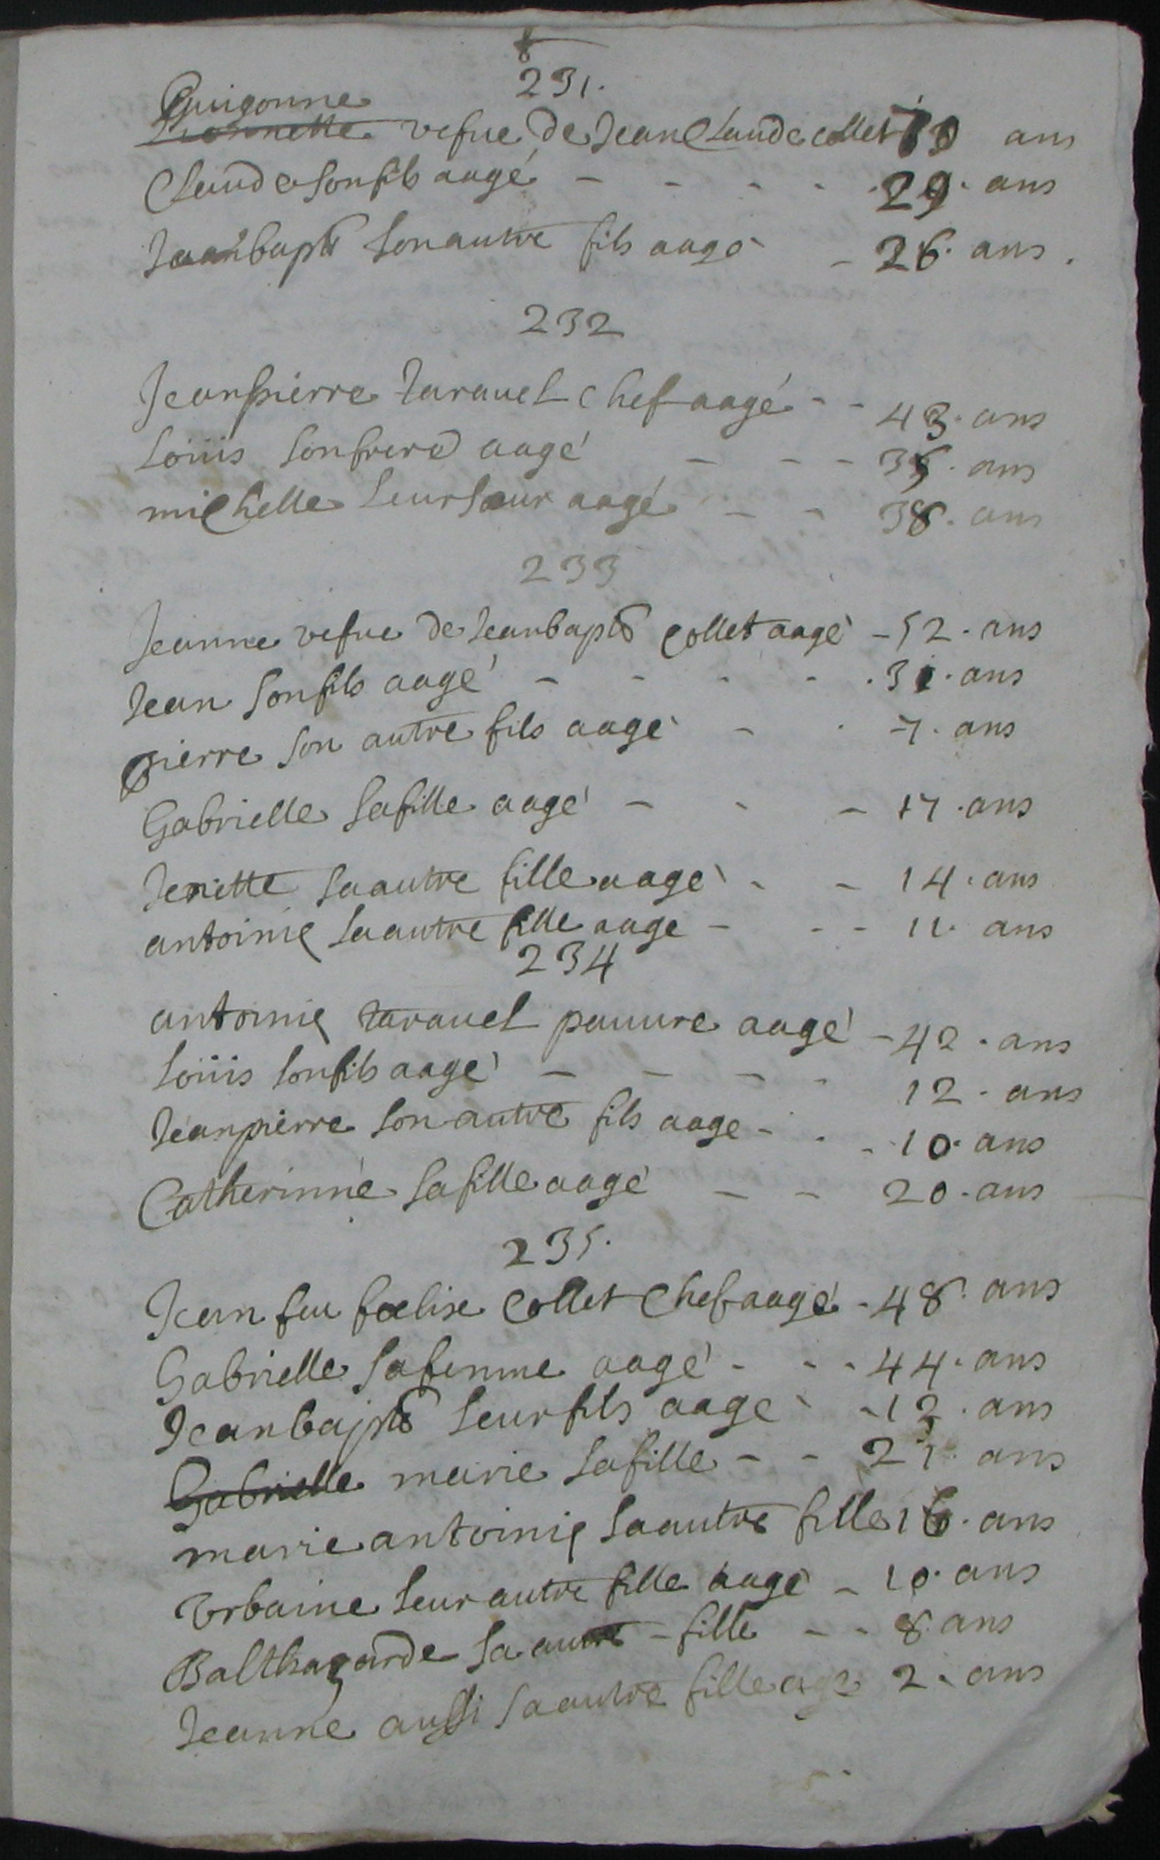 231.
Guigonne
vefue de Jean Claude collet 70 ans
Claude son fils aagé - - - - 29. ans
Jeanbapte son autre fils aagé - 26. ans.
232
Jeanpierre taravel chef aagé - - 43. ans
Loüis son frere aagé - - - 35. ans
michelle leur sœur aagé - - 38. ans
233
Jeanne vefue de Jeanbapte Collet aagé - 52. ans
Jean son fils aagé - - - - 31. ans
pierre son autre fils aagé - . 7. ans
Gabrielle sa fille aagé - - - 17. ans
Jenitte sa autre fille aagé - - 14. ans
antoinie sa autre fille aage - - - 11. ans
234
antoinie taravel pauure aagé - 42. ans
Loüis son fils aagé - - - - 12. ans
Jeanpierre son autre fils aage - . - 10. ans
Catherinne sa fille aagé - - 20. ans
235.
Jean feu fœlise Collet Chef aagé - 48. ans
Gabrielle sa femme aagé - - - 44. ans
Jeanbapte leur fils aage - 12. ans
Gabrielle marie sa fille - - 21. ans
marie antoinie sa autre fille 16. ans
Vrbaine leur autre fille aagé - 10. ans
Balthazarde sa autre - fille - - 8. ans
Jeanne aussi sa autre fille age 2. ans